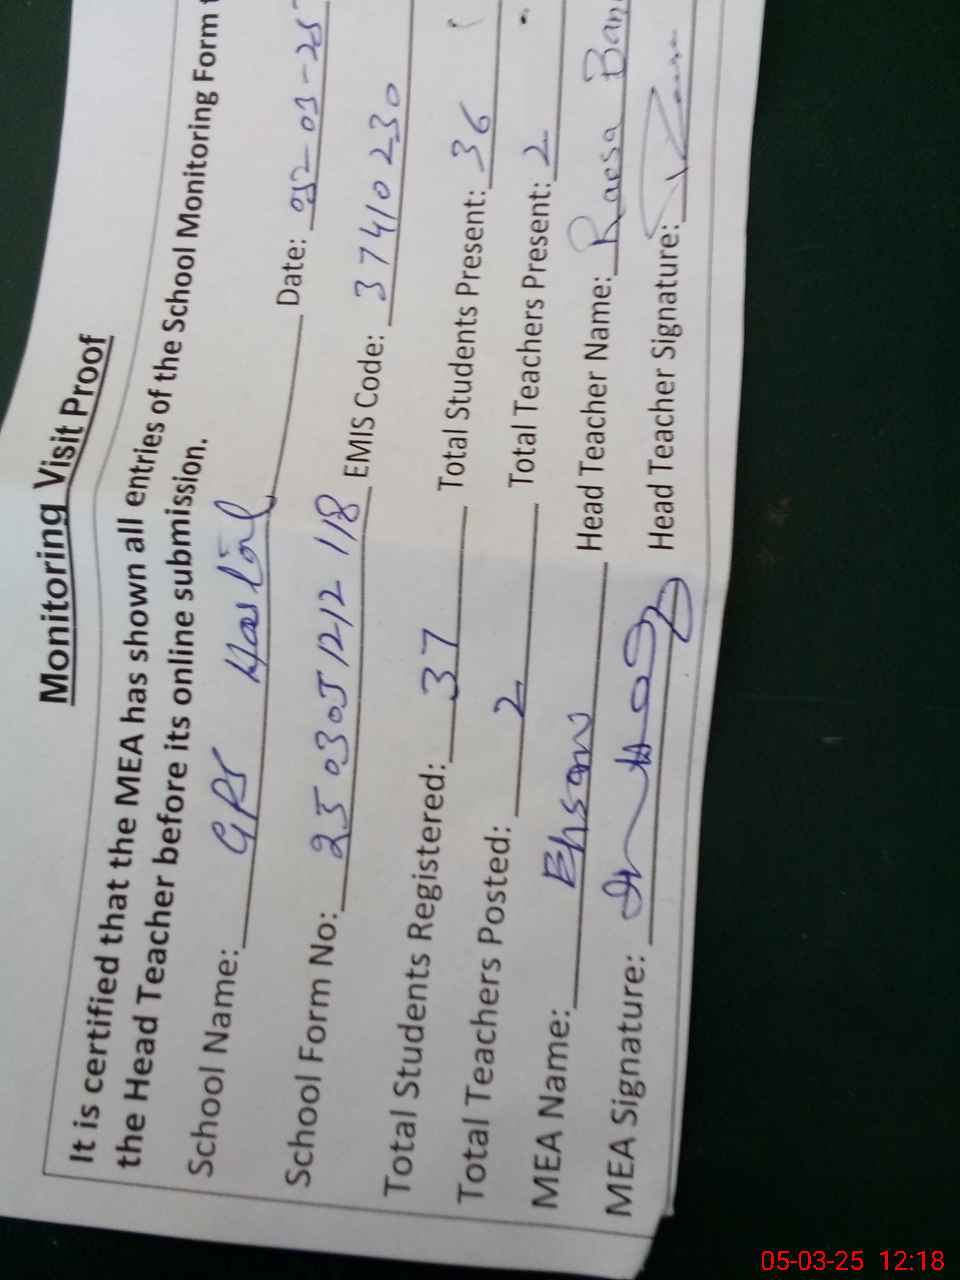 Monitoring Visit Proof
It is certified that the MEA has shown all entries of the School Monitoring Form
the Head Teacher before its online submission.
School Name: GPS Date: 052-03-25
School Form No: 250305 1212 118 EMIS Code: 37410230
Total Students Registered: 37 Total Students Present: 36
Total Teachers Posted: 2 Total Teachers Present: 2
MEA Name: Ehsan Head Teacher Name: Raesa Ban
MEA Signature: Head Teacher Signature:
05-03-25 12:18